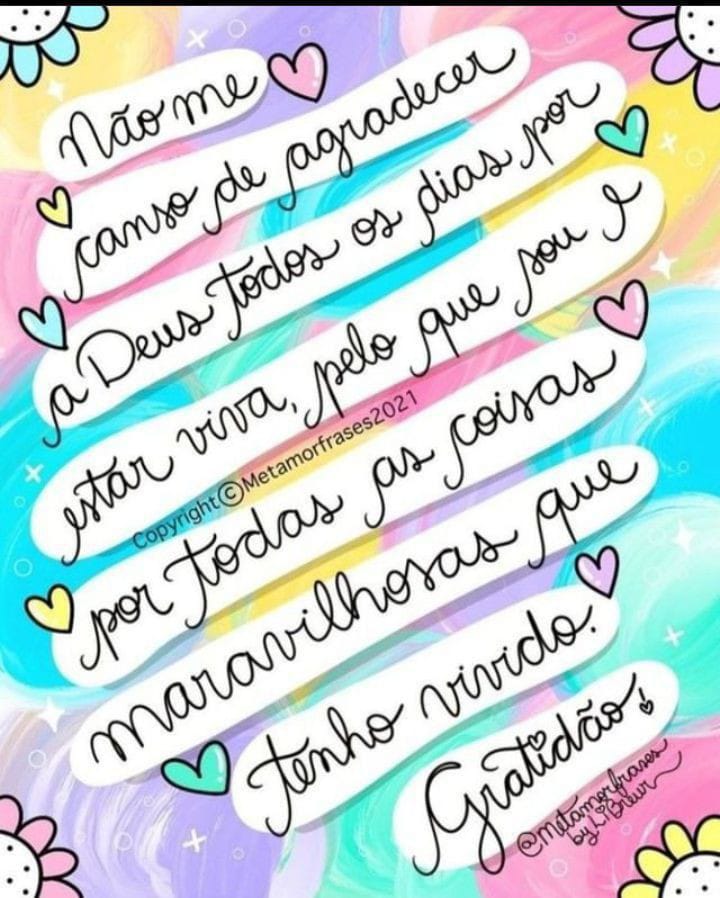 Não me
canso de agradecer
a Deus todos os dias por
estar viva, pelo que sou e
Copyright©Metamorfrases2021
por todas as coisas
maravilhosas que
tenho vivido.
Gratidão!
@metamorfrases
by Li Breur